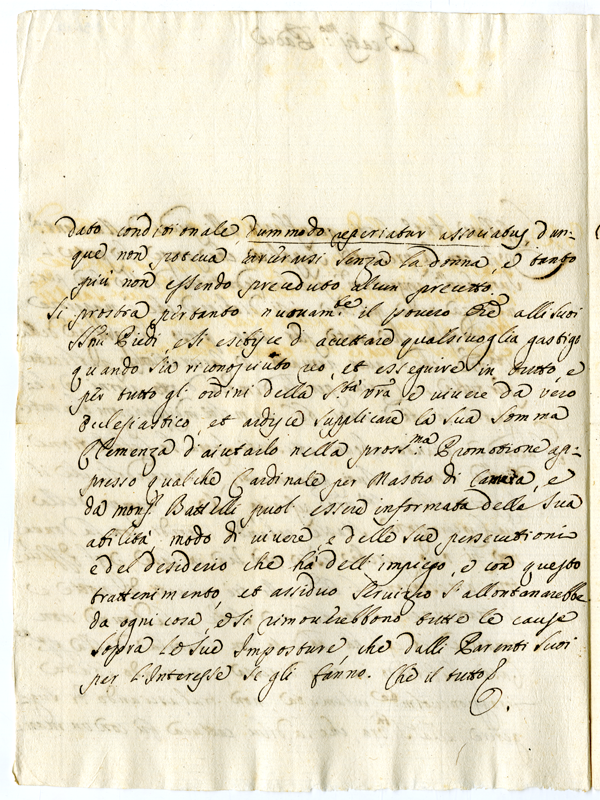 dato condizionale, dummodo reperiatur associatus, dun-
que non poteva carcerarsi senza la donna, e tanto
più non essendo preceduto alcun precetto.
Si prostra pertanto nuovam.te il povero Ore alli suoi
SSmi Piedi, e si esibisce d'accettare qualsivoglia gastigo
quando sia riconosciuto reo, et esseguire in tutto, e
per tutto gli ordini della S.tà Vrã e vivere da vero
Ecclesiastico, et ardisce supplicare la sua somma
Clemenza d'aiutarlo nella pross.ma Promotione ap-
presso qualche Cardinale per Mastro di Camera, e
da mons.r Battelli puol essere informata della sua
abilità, modo di vivere, e delle sue persecutioni
e del desiderio che hà dell'impiego, e con questo
trattenimento, et assiduo servizio s'allontanarebbe
da ogni cosa, e si rimoverebbono tutte le cause
sopra le sue Imposture che dalli Parenti suoi
per l'Interesse se gli fanno. Che il tutto